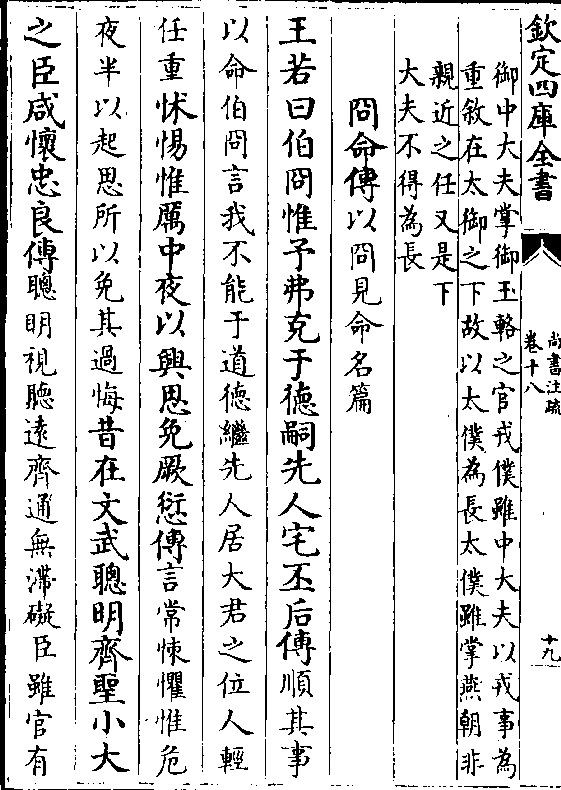 欽定四庫全書
尚書注疏
卷十八
十九
御中大夫掌御玉輅之官戎僕雖中大夫以戎事為
重敘在太御之下故以太僕為長太僕雖掌燕朝非
親近之任又是下
大夫不得為長
冏命傳以冏見命名篇
王若曰伯冏惟予弗克于德嗣先人宅丕后傳順其事
以命伯冏言我不能于道德繼先人居大君之位人輕
任重怵惕惟厲中夜以興思免厥愆傳言常悚懼惟危
夜半以起思所以免其過悔昔在文武聰明齊聖小大
之臣咸懷忠良傳聰明視聽遠齊通無滯礙臣雖官有